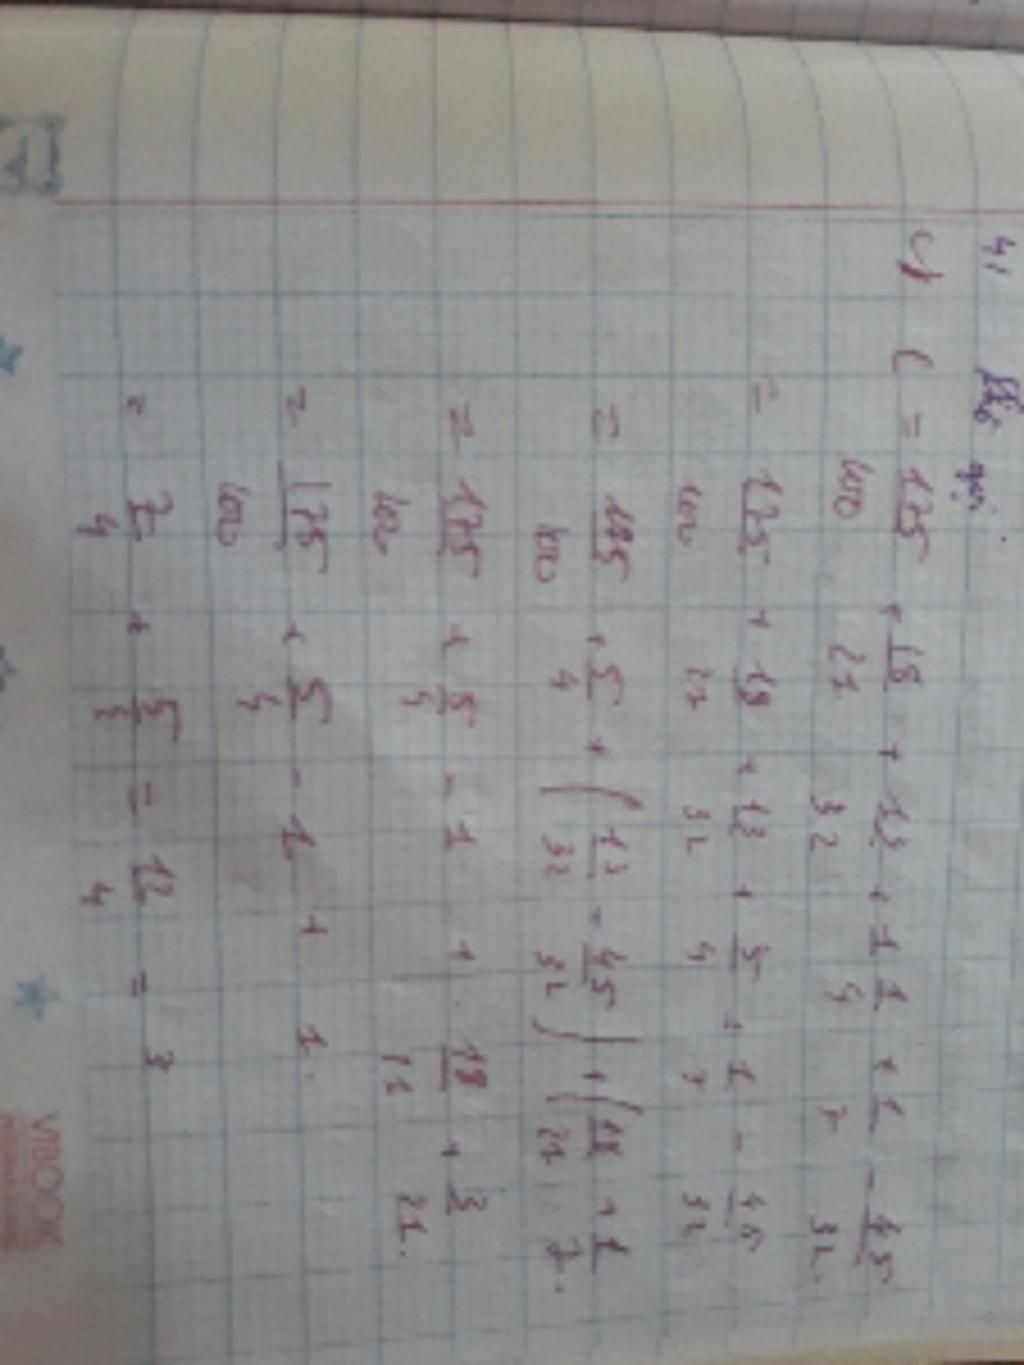 4,
c) C = 175/100 + 18/21 + 13/32 + 1 1/4 + 1/7 - 45/32.
= 175/100 + 18/21 + 13/32 + 5/4 + 1/7 - 45/32
= 175/100 + 5/4 + (13/32 - 45/32) + (18/21 + 1/7).
= 175/100 + 5/4 - 1 + 18/21 + 3/21.
= 175/100 + 5/4 - 1 + 1.
= 7/4 + 5/4 = 12/4 = 3
VIBOOK